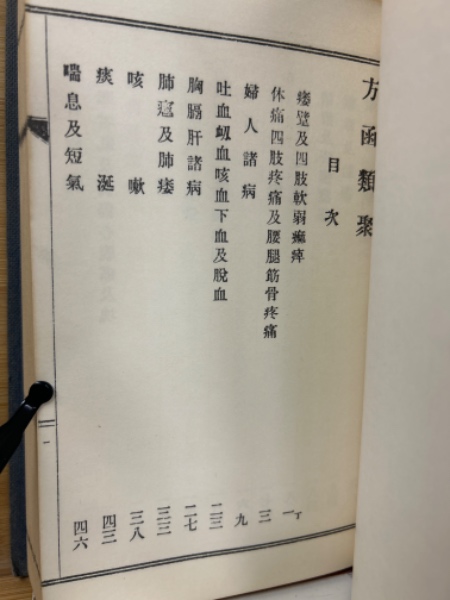 方函類聚
目次
痿躄及四肢軟弱癱瘓 一丁
体痛四肢疼痛及腰腿筋骨疼痛 三
婦人諸病 九
吐血衂血咳血下血及脫血 二三
胸膈肝諸病 二七
肺寃及肺痿 三二
咳嗽 三八
痰涎 四三
喘息及短氣 四六
一